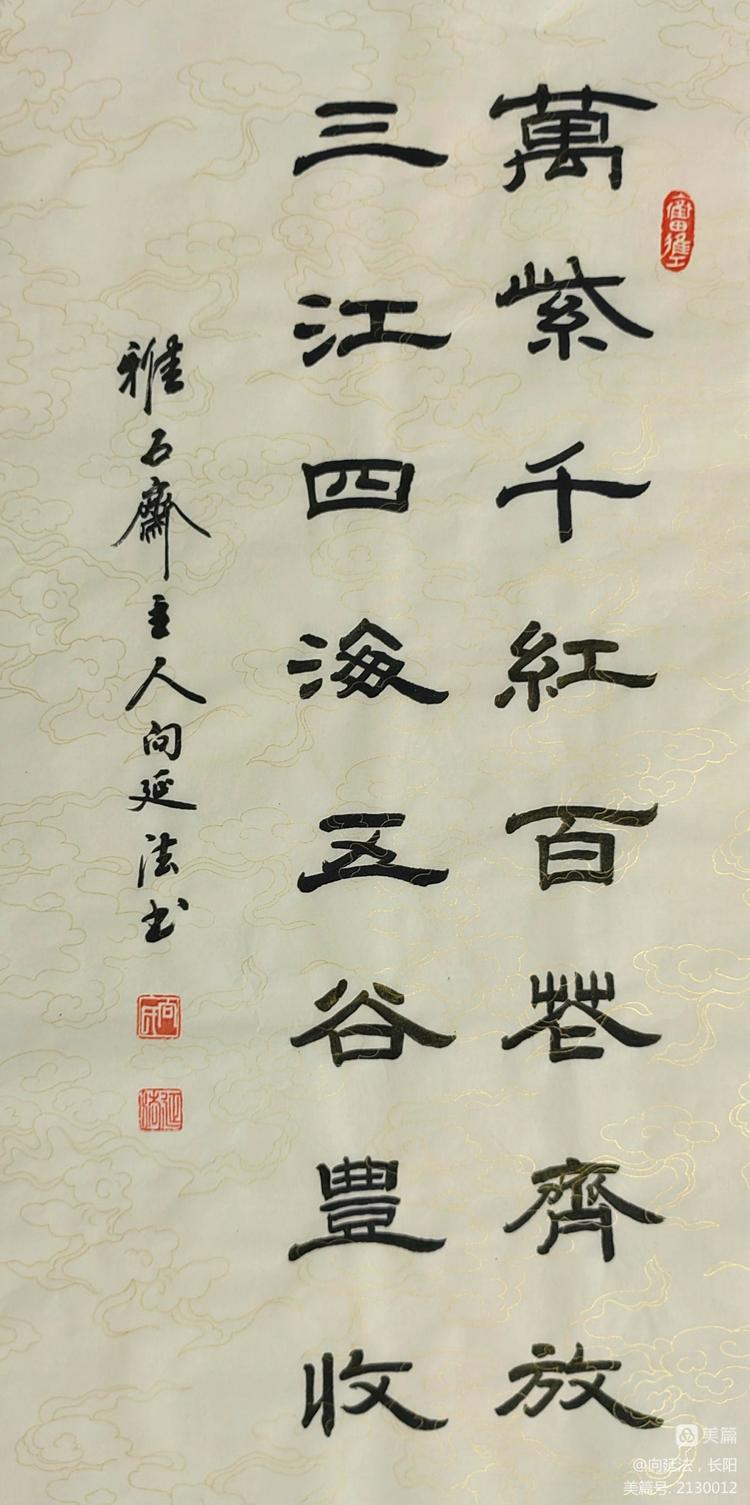 萬紫千紅百花齊放
三江四海五谷豐收
雅石齋主人向延法书
美篇
@向延法，长阳
美篇号: 2130012